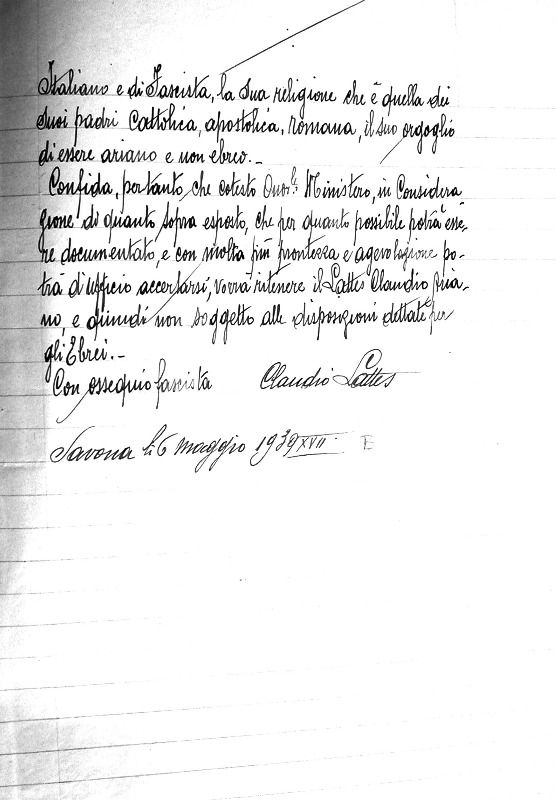 Italiano e di Fascista, la sua religione che è quella dei
suoi padri Cattolica, apostolica, romana, il suo orgoglio
di essere ariano e non ebreo.-
Confida, portanto, che cotesto Onor.le Ministero, in Considera
zione di quanto sopra esposto, che per quanto possibile potrà esse-
re documentato, e con molta più prontezza e agevolazione po-
trà d'ufficio accertarsi, vorrà ritenere il Lattes Claudio Aria-
no, e quindi non soggetto alle disposizioni dettate per
gli Ebrei.-
Con ossequio fascista Claudio Lattes
Savona li 6 maggio 1939 XVII. E